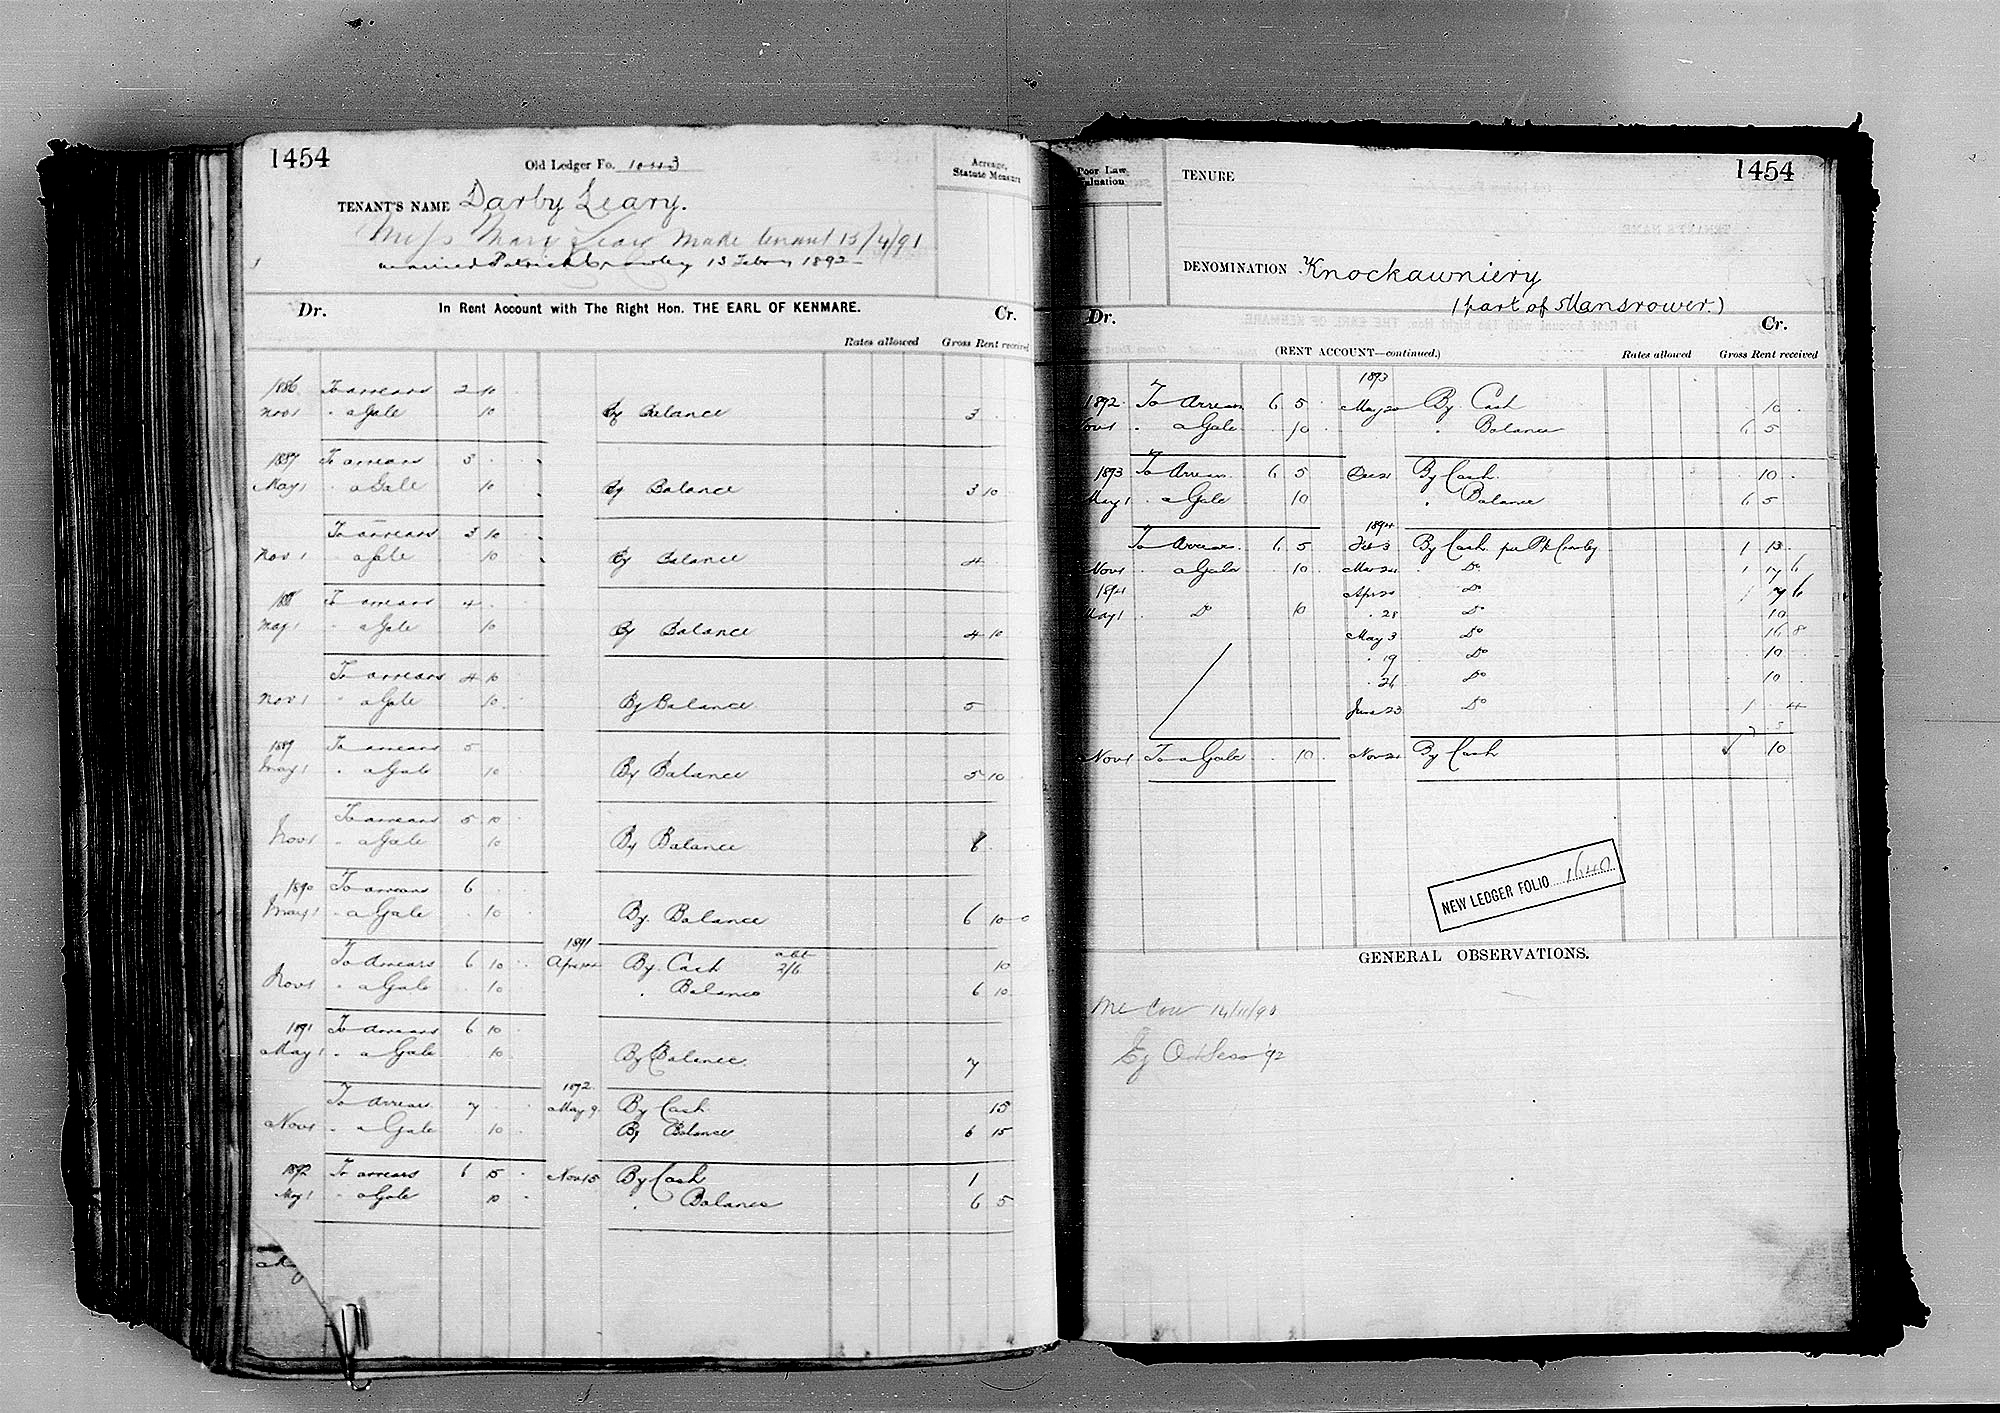 1454
Old Ledger Fo. 1043
Acreage, Statute Measure
TENANT'S NAME Darby Leary.
Miss Mary Leary made tenant 15/4/91
married Patrick Crowley 13 Febry 1892
Dr. In Rent Account with The Right Hon. THE EARL OF KENMARE. Cr.
Rates allowed Gross Rent received
1886 To arrears 2 10
Nov 1 " a Gale 10 By Balance 3
1887 To arrears 3
May 1 " a Gale 10 By Balance 3 10
To arrears 3 10
Nov 1 " a Gale 10 By Balance 4
1888 To arrears 4
May 1 " a Gale 10 By Balance 4 10
To arrears 4 10
Nov 1 " a Gale 10 By Balance 5
1889 To arrears 5
May 1 " a Gale 10 By Balance 5 10
To arrears 5 10
Nov 1 " a Gale 10 By Balance 6
1890 To arrears 6
May 1 " a Gale 10 By Balance 6 10 0
1891
To Arrears 6 10 By Cash abt 2/6 10
Nov 1 " a Gale 10 " Balance 6 10
1891 To Arrears 6 10
May 1 " a Gale 10 By Balance 7
1892
To Arrears 7 May 9 By Cash 15
Nov 1 " a Gale 10 By Balance 6 15
1892 To arrears 6 15 Nov 15 By Cash 1
May 1 " a Gale 10 " Balance 6 5
Poor Law Valuation
TENURE
1454
DENOMINATION Knockawniery
(part of Mansrower.)
Dr. Cr.
(RENT ACCOUNT—continued.) Rates allowed Gross Rent received
1893
1892 To Arrears 6 5 May 20 By Cash 10
Nov 1 " a Gale 10 " Balance 6 5
1893 To Arrears 6 5 Dec 21 By Cash 10
May 1 " a Gale 10 " Balance 6 5
1894
To Arrears 6 5 Feb 3 By Cash per Pk Crowley 1 13
Nov 1 " a Gale 10 Mar 24 " Do 1 17 6
1894 Apr 20 Do 1 7 6
May 1 " Do 10 " 28 Do 10
May 3 Do 16 8
" 19 Do 10
" 26 Do 10
June 23 Do 1 4
Nov 1 To a Gale 10 Nov 21 By Cash 10
NEW LEDGER FOLIO 1640
GENERAL OBSERVATIONS.
14/11/90
Ej Oct Sess '92